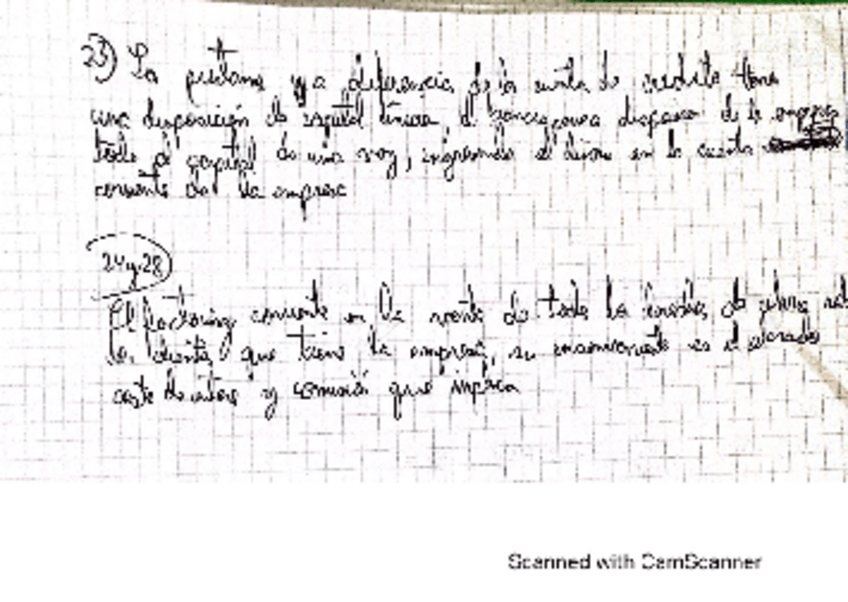 23) La préstamo y a diferencia de la cuenta de credito tiene
una disposición de capital única, el dispone de la empresa
todo el capital de una vez, ingresando el dinero en la cuenta
corriente de la empresa
24 y 28
El factoring consiste en la venta de todo los derechos de cobro
los clientes que tiene la empresa, su inconveniente es el elevado
coste de interes y comisión que implica
Scanned with CamScanner